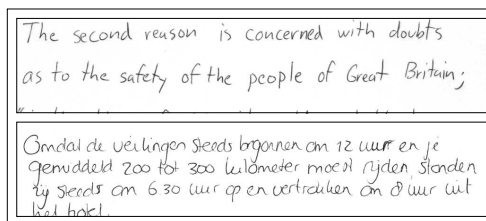 The second reason is concerned with doubts
as to the safety of the people of Great Britain;
Omdat de veilingen steeds begonnen om 12 uur en je
gemiddeld 200 tot 300 kilometer moest rijden, stonden
wij steeds om 6 30 uur op en vertrokken om 8 uur uit
het hotel.